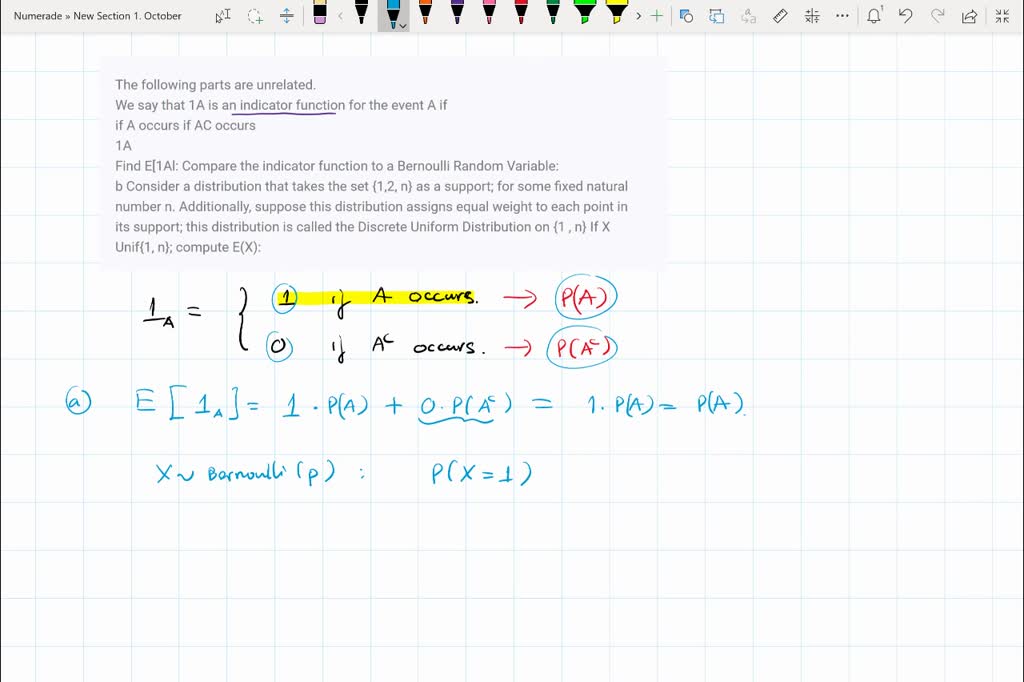 Numerade » New Section 1. October
The following parts are unrelated.
We say that 1A is an indicator function for the event A if
if A occurs if AC occurs
1A
Find E[1Al: Compare the indicator function to a Bernoulli Random Variable:
b Consider a distribution that takes the set {1,2, n} as a support; for some fixed natural
number n. Additionally, suppose this distribution assigns equal weight to each point in
its support; this distribution is called the Discrete Uniform Distribution on {1 , n} If X
Unif{1, n}; compute E(X):
1_A = { 1 if A occurs. → P(A)
0 if A^c occurs. → P(A^c)
(a) E[1_A] = 1 · P(A) + 0 · P(A^c) = 1 · P(A) = P(A).
X ~ Bernoulli(p) : P(X = 1)